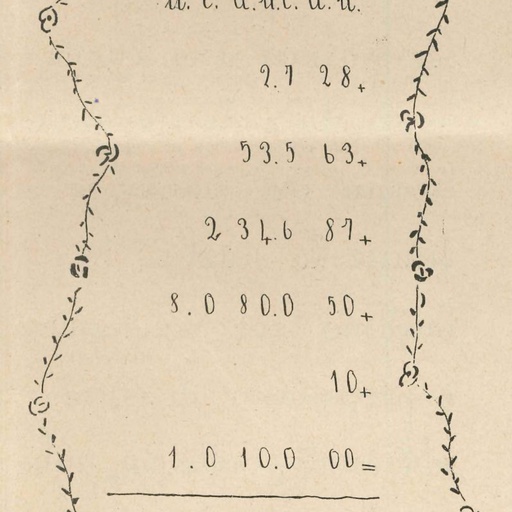 2.7 28+
53.5 63+
2 34.6 87+
8.0 80.0 50+
10+
1.0 10.0 00=